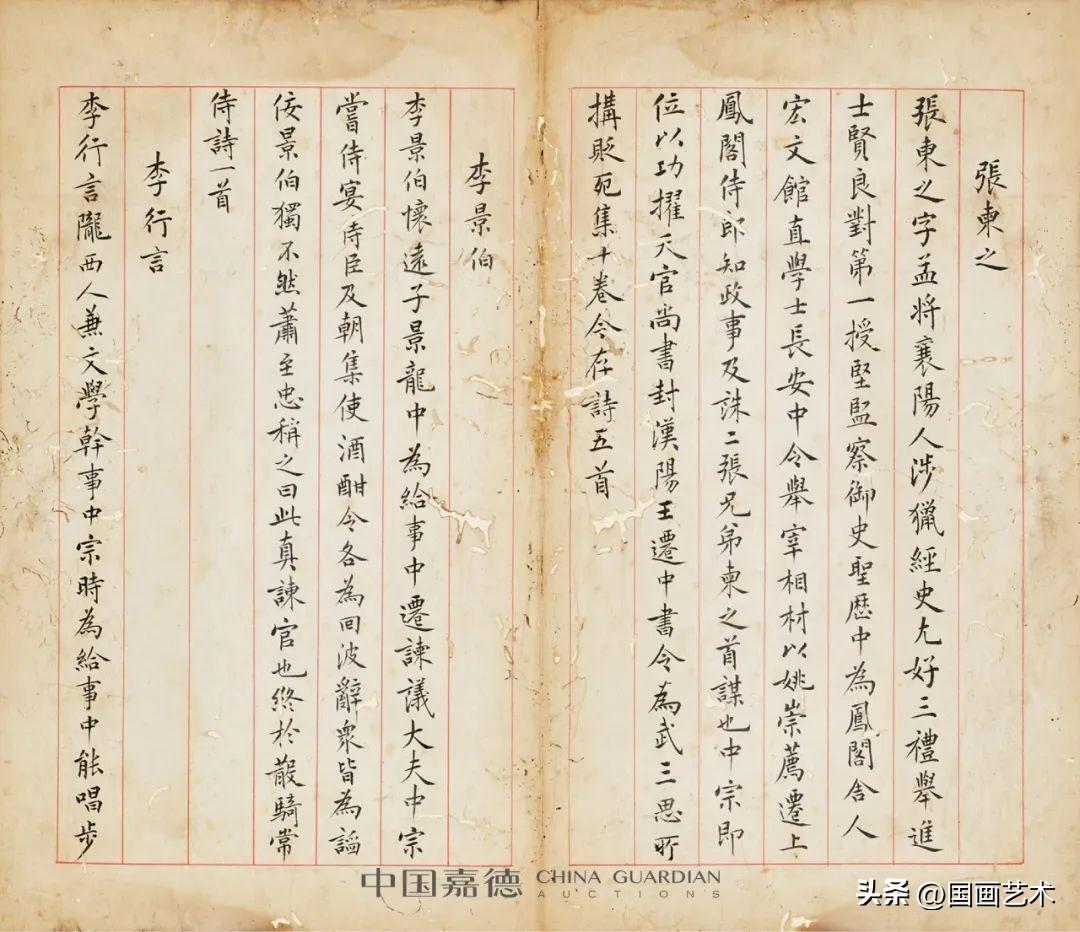 張柬之
張柬之字孟将襄陽人涉獵經史尤好三禮舉進
士賢良對第一授監察御史聖歴中為鳳閣舍人
宏文館直學士長安中令舉宰相材以姚崇薦遷上
鳳閣侍郎知政事及誅二張兄弟柬之首謀也中宗即
位以功擢天官尚書封漢陽王遷中書令為武三思所
搆貶死集十卷今存詩五首
李景伯
李景伯懷遠子景龍中為給事中遷諫議大夫中宗
嘗侍宴侍臣及朝集使酒酣令各為回波辭衆皆為謟
佞景伯獨不然蕭至忠稱之曰此真諫官也終於散騎常
侍詩一首
李行言
李行言隴西人兼文學幹事中宗時為給事中能唱步
中国嘉德 CHINA GUARDIAN
AUCTIONS
头条 @国画艺术